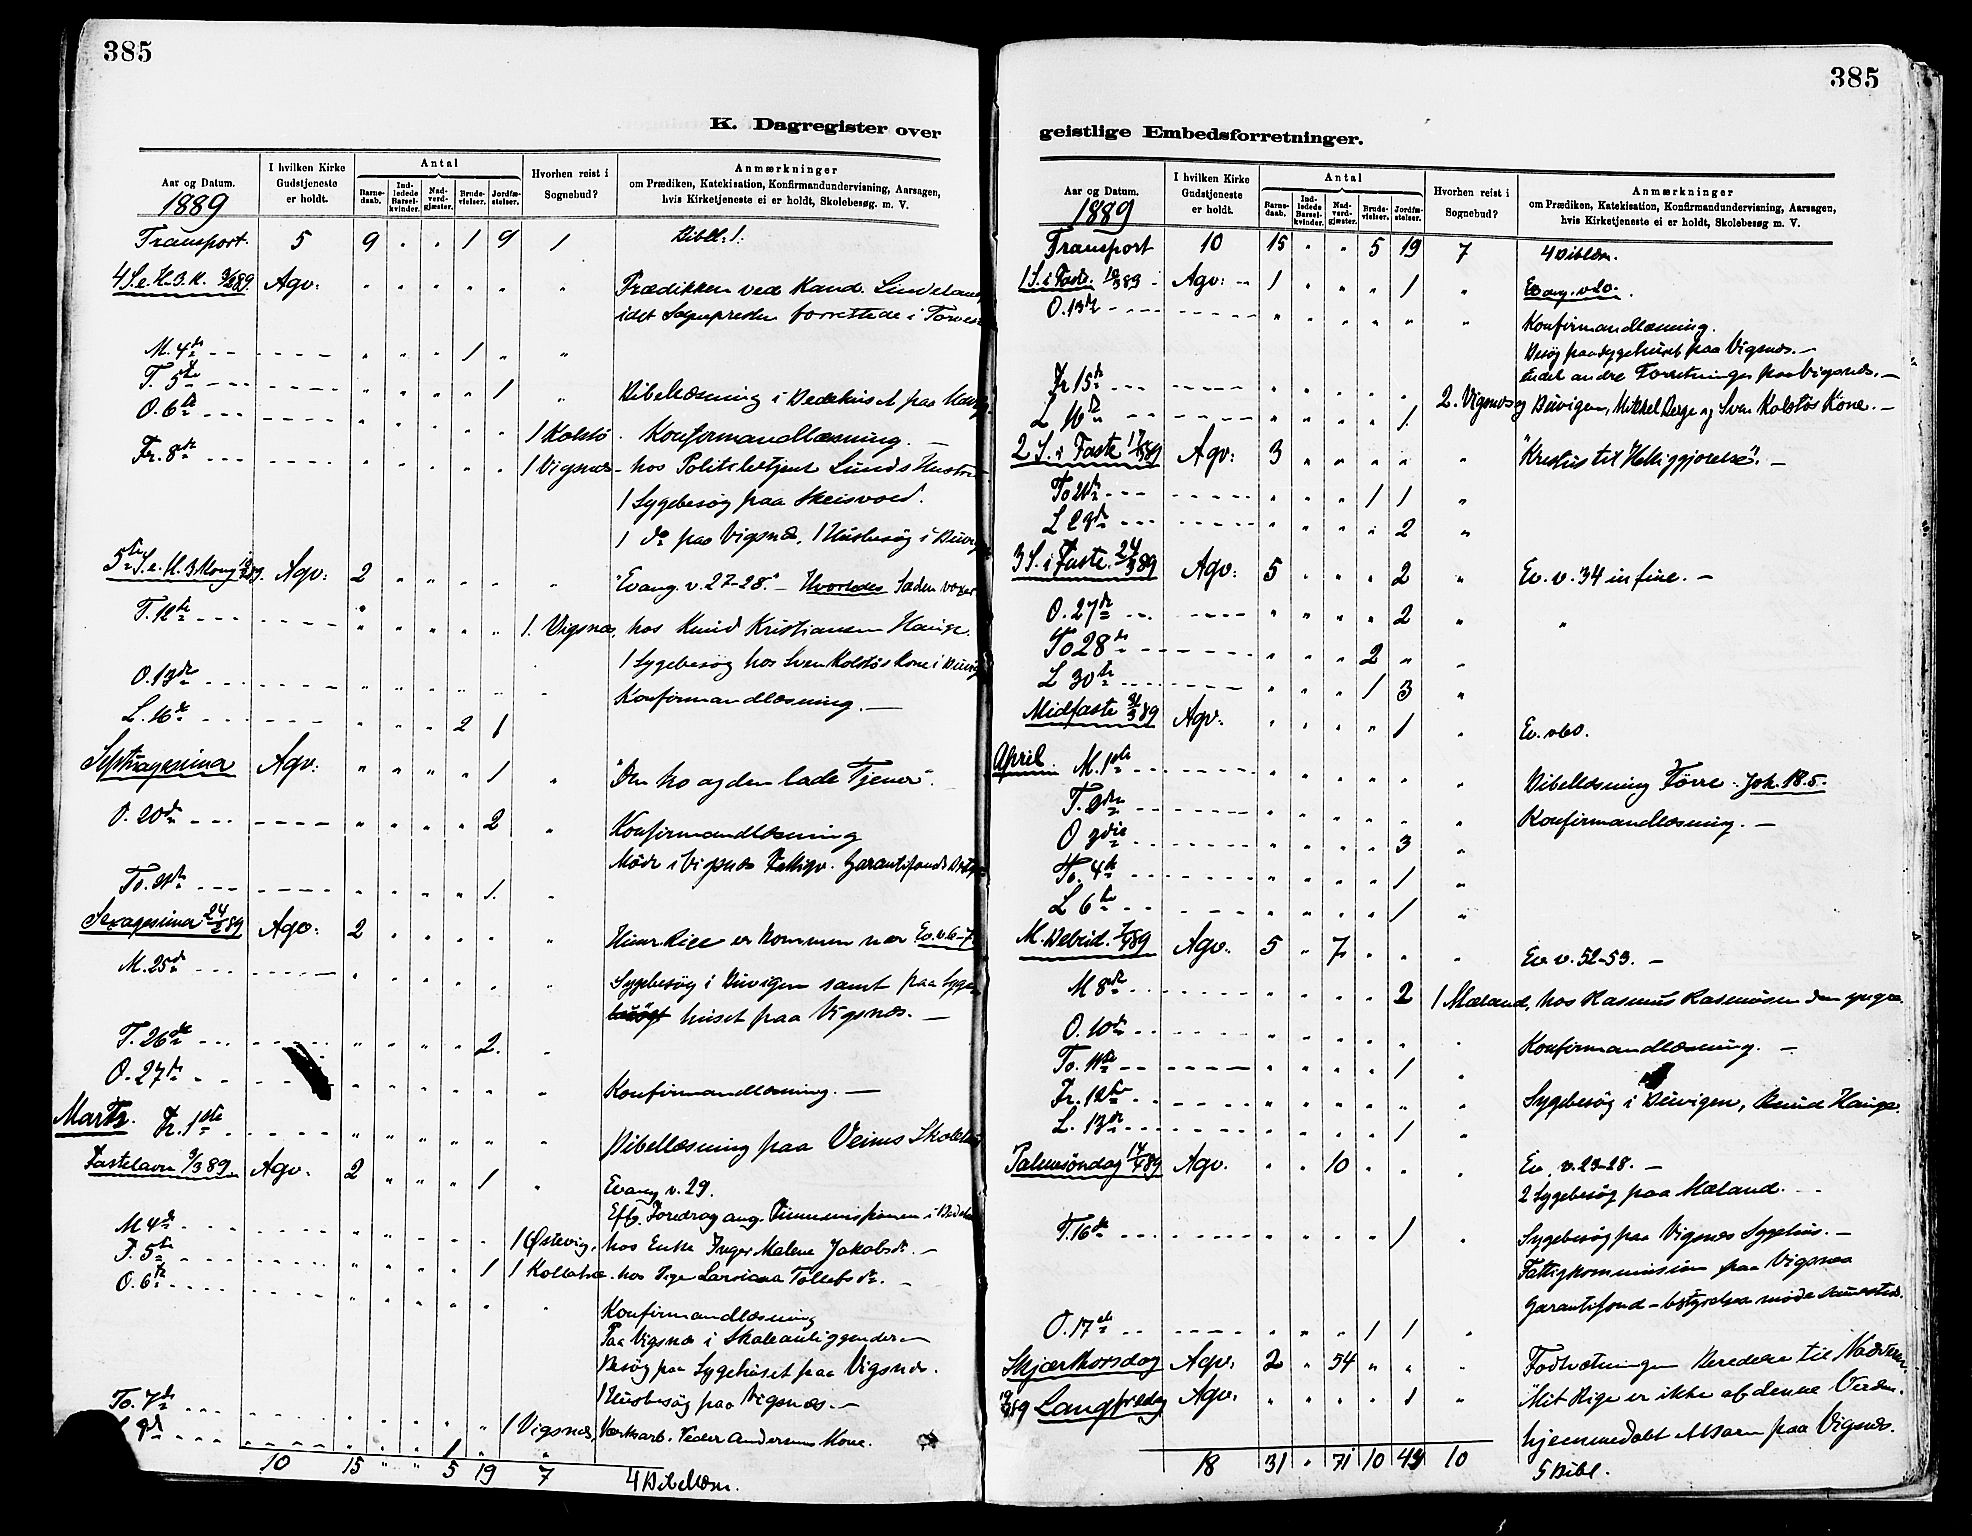 385
K. Dagregister over
Aar og Datum.
1889
I hvilken Kirke Gudstjeneste er holdt.
Antal
Barnedaab.
Indledede Barselkvinder.
Nadverdgjæster.
Brudevielser.
Jordfæstelser.
Hvorhen reist i Sognebud?
Anmærkninger
om Prædiken, Katekisation, Konfirmandundervisning, Aarsagen,
hvis Kirketjeneste ei er holdt, Skolebesøg. m. V.
Transport. 5 9 " " 1 9 1 Bibll: 1.
4 S. e. H. 3. K. 3/2 89 Agv: " " " " " " Prædikken ved Kand.
idet Sognepresten forrettede i
M. 4de " " " 1 " "
T. 5te " " " " 1 " Bibellæsning i Bedehuset paa
O. 6te " " " " " 1 Kolstø. Konfirmandlæsning. —
Fr. 8de " " " " " 1 Vigsnæs - hos Politibetjent Lunds Hustru
1 Sygebesøg paa
1 do paa Vigsnæs, 1 Husbesøg i
5te S. e. H. 3 Kong 10/2 89. Agv: 2 " " " " " "Evang. v. 27-28." - Hvorledes Sæden voxer
T. 12te " " " " " 1. Vigsnæs, hos Knud Kristiansen Hauge.
1 Sygebesøg hos Sven Kolstøs Kone i
O. 13de " " " " " " Konfirmandlæsning. —
L. 16de " " " 2 1
Septuagesima Agv: " " " " 1 " "Den tro og den lade Tjener".
O. 20de " " " " 2 " Konfirmandlæsning
Møde i Vigsnæs Fattigv. Garantifonds
To. 21de " " " " 1. "
Sexagesima 24/2 89 Agv: 2 " " " " " Himr. Rige er kommen nær Ev. v. 6-7
M. 25de " " " " " " Sygebesøg i Duvigen samt paa Syge
huset paa Vigsnæs. —
T. 26de " " " " 2. "
O. 27de " " " " " " Konfirmandlæsning. —
Marts. Fr. 1ste " " " " " " Bibellæsning paa
Fastelavn 3/3 89. Agv. 2 " " " 1 " Evang v. 29.
Eft. Foredrag ang. i
M 4de " " " " " 1 Østevig, hos Enke Inger Malene Jakobsdr. —
T. 5te " " " " 1 1 hos Pige Tollefsdr. —
O. 6te " " " " " " Konfirmandlæsning
Paa Vigsnæs i Skoleanliggender —
Besøg paa Sygehuset paa Vigsnæs.
1 Husbesøg paa Vigsnæs. —
To. 7de " " " " " 1 Vigsnæs, Værksarb. Peder Andersens Kone.
9de " " " 1 " "
10 15 " " 5 19 7 4 Bibellæsn.
385
geistlige Embedsforretninger.
Aar og Datum.
1889
I hvilken Kirke Gudstjeneste er holdt.
Antal
Barnedaab.
Indledede Barselkvinder.
Nadverdgjæster.
Brudevielser.
Jordfæstelser.
Hvorhen reist i Sognebud?
Anmærkninger
om Prædiken, Katekisation, Konfirmandundervisning, Aarsagen,
hvis Kirketjeneste ei er holdt, Skolebesøg. m. V.
Transport 10 15 " " 5 19 7 4 Biblæsn.
1 S. i Faste. 10/3 89 Agv: 1 " " " 1 " Evang. v 20.
O. 13de " " " " " " Konfirmandlæsning.
Besøg paa Sygehuset paa Vigsnæs. —
Endel andre Forretninger paa Vigsnæs. —
Fr 15de " " " " " 2. Vigsnæs og Duvigen, Mikkel Berge og Sven Kolstøs Kone. —
L 16de " " " " 1.
2 S. i Faste 17/3 89 Agv: 3 " " " " " "Kristus til Helliggjørelse". —
To 21de " " " 1 1 "
L 23de " " " " 2 "
3 S. i Faste. 24/3 89 Agv: 5 " " " 2 " Ev. v. 34 in fine. —
O. 27de " " " " 2 " "
To 28de " " " 2 " "
L 30te " " " 1 3 "
Midfaste 31/3 89 Agv: " " " " 1 " Ev. v 60.
April. M. 1ste " " " " " " Bibellæsning Førre Joh. 18. 5.
T. 2den " " " " " " Konfirmandlæsning. —
O 3die " " " " 3 "
To. 4de " " " " 1 "
L 6te " " " " 1 "
M. Bebud. 7/4 89 Agv. 5 " 7 " " " Ev v. 52-53. —
M 8de " " " " 2 1 Mæland, hos Rasmus Rasmussen den yngre.
O. 10de " " " " " " Konfirmandlæsning. —
To. 11te " " " " 1 "
Fr. 12te " " " " " " Sygebesøg i Duvigen, Knud Hauge.
L. 13de " " " " 1 "
Palmesøndag 14/4 89 Agv. " " 10 " " " Ev. v. 23-28. —
2 Sygebesøg paa Mæland. —
T. 16de " " " " 1 " Sygebesøg paa Vigsnæs Sygehus. —
Fattigkommission paa Vigsnæs
Garantifond - bestyrelsesmøde sammesteds.
O. 17de " " " 1 1 "
Skjærthorsdag Agv. 2 " 54 " " " Fodtvætningen Beredelse til Nadveren.
19/4 89 Langfredag Agv. " " " " 1 " "Mit Rige er ikke af denne Verden.
hjemmedøbt Barn paa Vigsnæs.
18 31 " 71 10 43 10 5 Bibl.